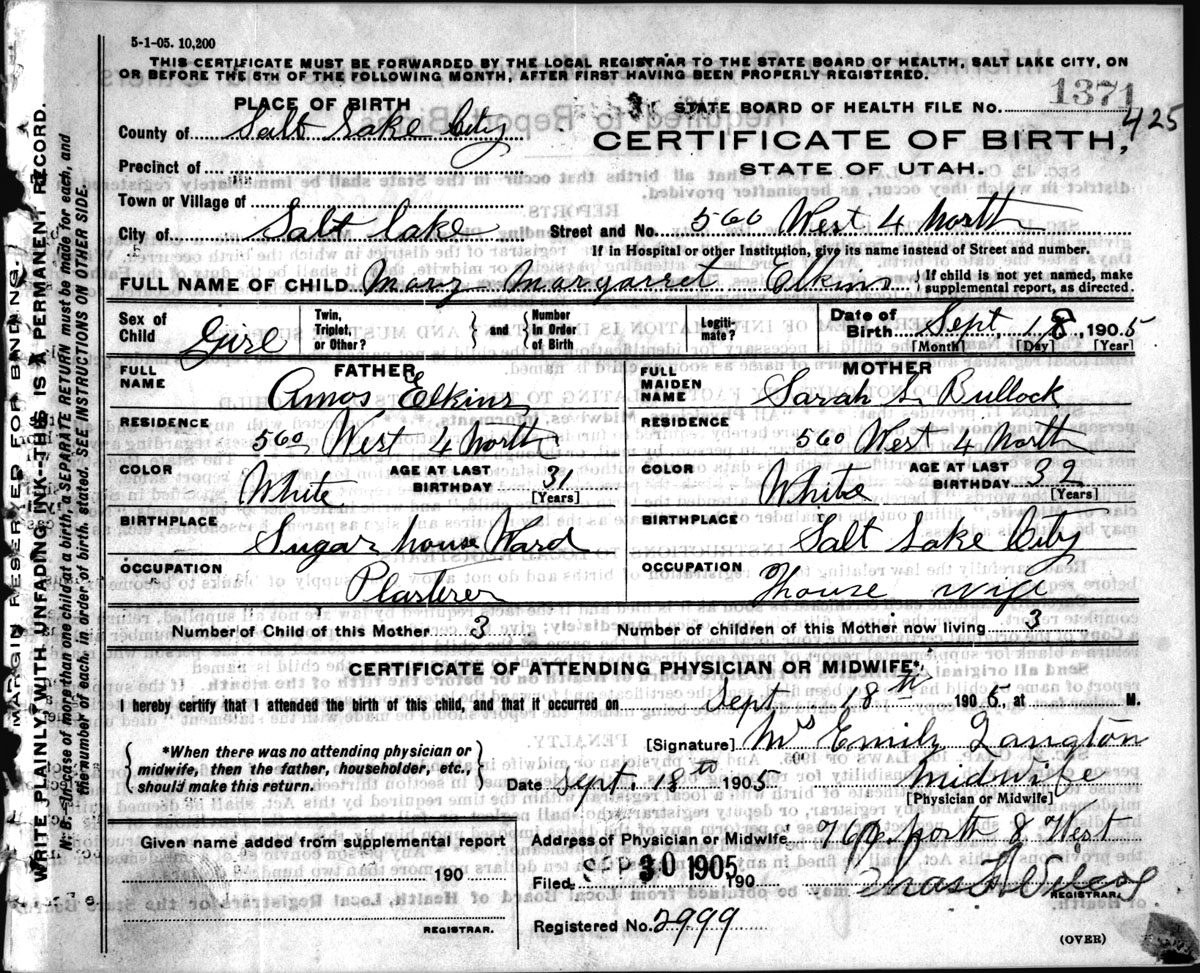 5-1-05. 10,200
THIS CERTIFICATE MUST BE FORWARDED BY THE LOCAL REGISTRAR TO THE STATE BOARD OF HEALTH, SALT LAKE CITY, ON
OR BEFORE THE 5TH OF THE FOLLOWING MONTH, AFTER FIRST HAVING BEEN PROPERLY REGISTERED.
PLACE OF BIRTH
STATE BOARD OF HEALTH FILE NO. 1371
425
County of Salt Lake City
CERTIFICATE OF BIRTH,
STATE OF UTAH.
Precinct of
Town or Village of
City of Salt Lake Street and No. 560 West 4 North
If in Hospital or other Institution, give its name instead of Street and number.
FULL NAME OF CHILD Mary Margarret Elkins {If child is not yet named, make
supplemental report, as directed.
Sex of Child Girl Twin, Triplet, or Other? } and { Number in Order of Birth Legiti- mate? Date of Birth Sept 18 1905
[Month] [Day] [Year]
FATHER MOTHER
FULL NAME Amos Elkins FULL MAIDEN NAME Sarah S. Bullock
RESIDENCE RESIDENCE
560 West 4 North 560 West 4 North
COLOR White AGE AT LAST BIRTHDAY 31 [Years] COLOR White AGE AT LAST BIRTHDAY 32 [Years]
BIRTHPLACE BIRTHPLACE
Sugar house Ward Salt Lake City
OCCUPATION OCCUPATION
Plasterer House wife
Number of Child of this Mother 3 Number of children of this Mother now living 3
CERTIFICATE OF ATTENDING PHYSICIAN OR MIDWIFE*
I hereby certify that I attended the birth of this child, and that it occurred on Sept 18th 1905, at M.
{*When there was no attending physician or
midwife, then the father, householder, etc.,
should make this return.}
[Signature] Mrs Emily Langton
Date Sept. 18th 1905 Midwife
[Physician or Midwife]
Given name added from supplemental report
190
REGISTRAR.
Address of Physician or Midwife 760 North 8 West
Filed SEP 30 1905 190
REGISTRAR.
Registered No. 2999
(OVER)
MARGIN RESERVED FOR BINDING.
WRITE PLAINLY WITH UNFADING INK--THIS IS A PERMANENT RECORD.
N. B.--In case of more than one child at a birth, a SEPARATE RETURN must be made for each, and
the number of each, in order of birth, stated. SEE INSTRUCTIONS ON OTHER SIDE.